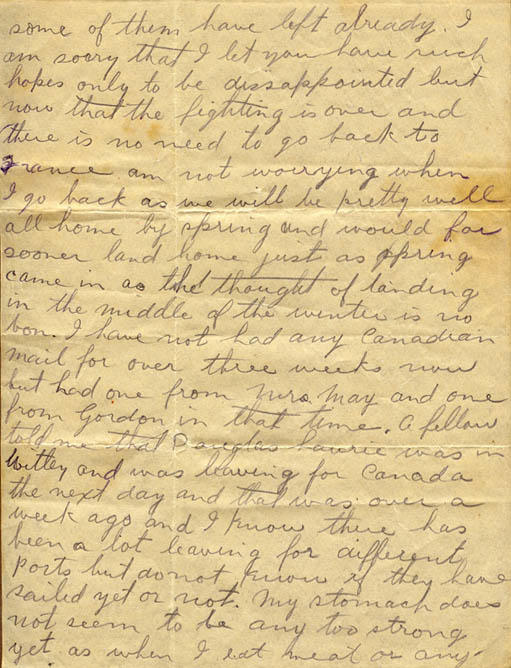 some of them have left already. I
am sorry that I let you have such
hopes only to be dissappointed but
now that the fighting is over and
there is no need to go back to
France am not worrying when
I go back as we will be pretty well
all home by spring and would far
sooner land home just as spring
came in as the thought of landing
in the middle of the winter is no
bon. I have not had any Canadian
mail for over three weeks now
but had one from Mrs. May and one
from Gordon in that time. A fellow
told me that Douglas Laurie was in
Witley and was leaving for Canada
the next day and that was over a
week ago and I know there has
been a lot leaving for different
ports but do not know if they have
sailed yet or not. My stomach does
not seem to be any too strong
yet as when I eat meat or any